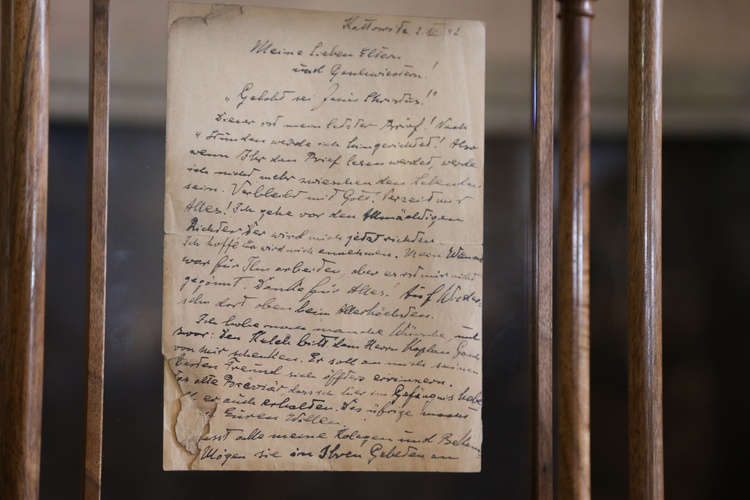 Kattowitz 2. XII 42
Meine Lieben Eltern
und Geschwiestern!
„Gelobt sei Jesus Christus!"
Dieser ist mein letzter Brief! Nach
4 Stunden werde ich hingerichtet! Also
wenn Ihr den Brief lesen werdet, werde
ich nicht mehr zwieschen den Lebenden
sein. Verbleibt mit Gott. Verzeiht mir
Alles! Ich gehe vor den Allmächtigen
Richter Der wird mich jetzt richten
Ich hoffe Er wird mich annehmen. Mein
war für Ihn arbeiten, aber es ist mir nicht
gegönnt. Danke für Alles! Auf Wieder-
sehn dort oben beim Allerhöchsten.
Ich habe noch manche Wünsche, und
zwar: den Kelch bitt dem Herrn Kaplan
von mir schenken. Er soll an mich seinen
Freund sich öffters erinnern.
alte Brevier dass ich hier im Gefängnis habe
er auch erhalten. Das übrige
Euren Willen.
alle meine Kolegen und
Mögen sie in Ihren Gebeden an